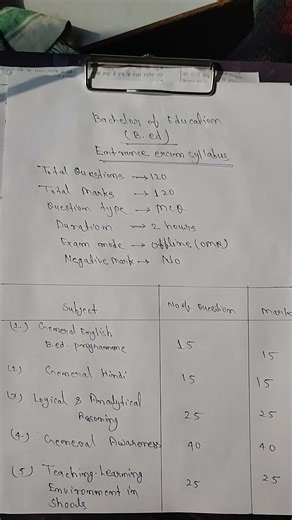 Bachelor of Education
(B.ed)
Entrance exam syllabus
Total Questions → 120
Total Marks → 120
Question type → MCQ
Duration → 2 hours
Exam mode → offline (OMR)
Negative Mark → No
Subject No of Question Marks
(1.) General English B.ed. programme 15 15
(2) General Hindi 15 15
(3) Logical & Analytical Reasoning 25 25
(4.) General Awareness 40 40
(5) Teaching-Learning Environment in Shools 25 25